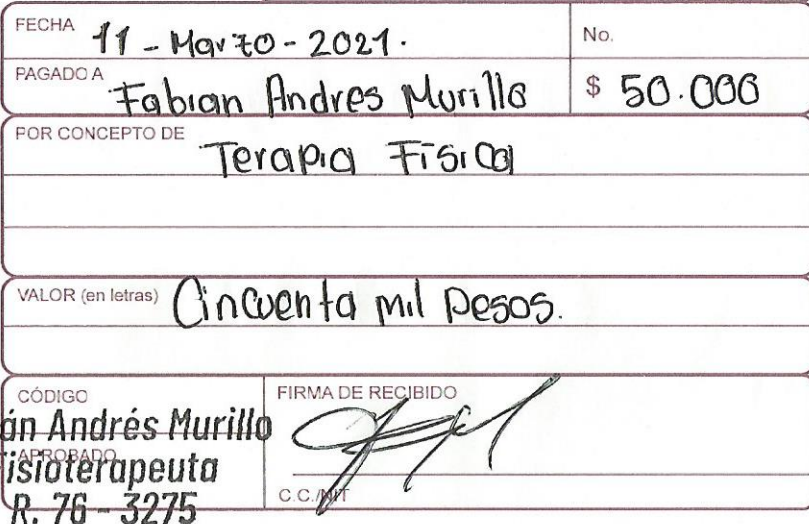 FECHA 11 - Marzo - 2021.
No.
PAGADO A Fabian Andres Murillo
$ 50.000
POR CONCEPTO DE Terapia Física
VALOR (en letras) Cincuenta mil pesos.
CÓDIGO
FIRMA DE RECIBIDO
án Andrés Murillo
APROBADO
isioterapeuta
R. 76 - 3275
C.C./NIT